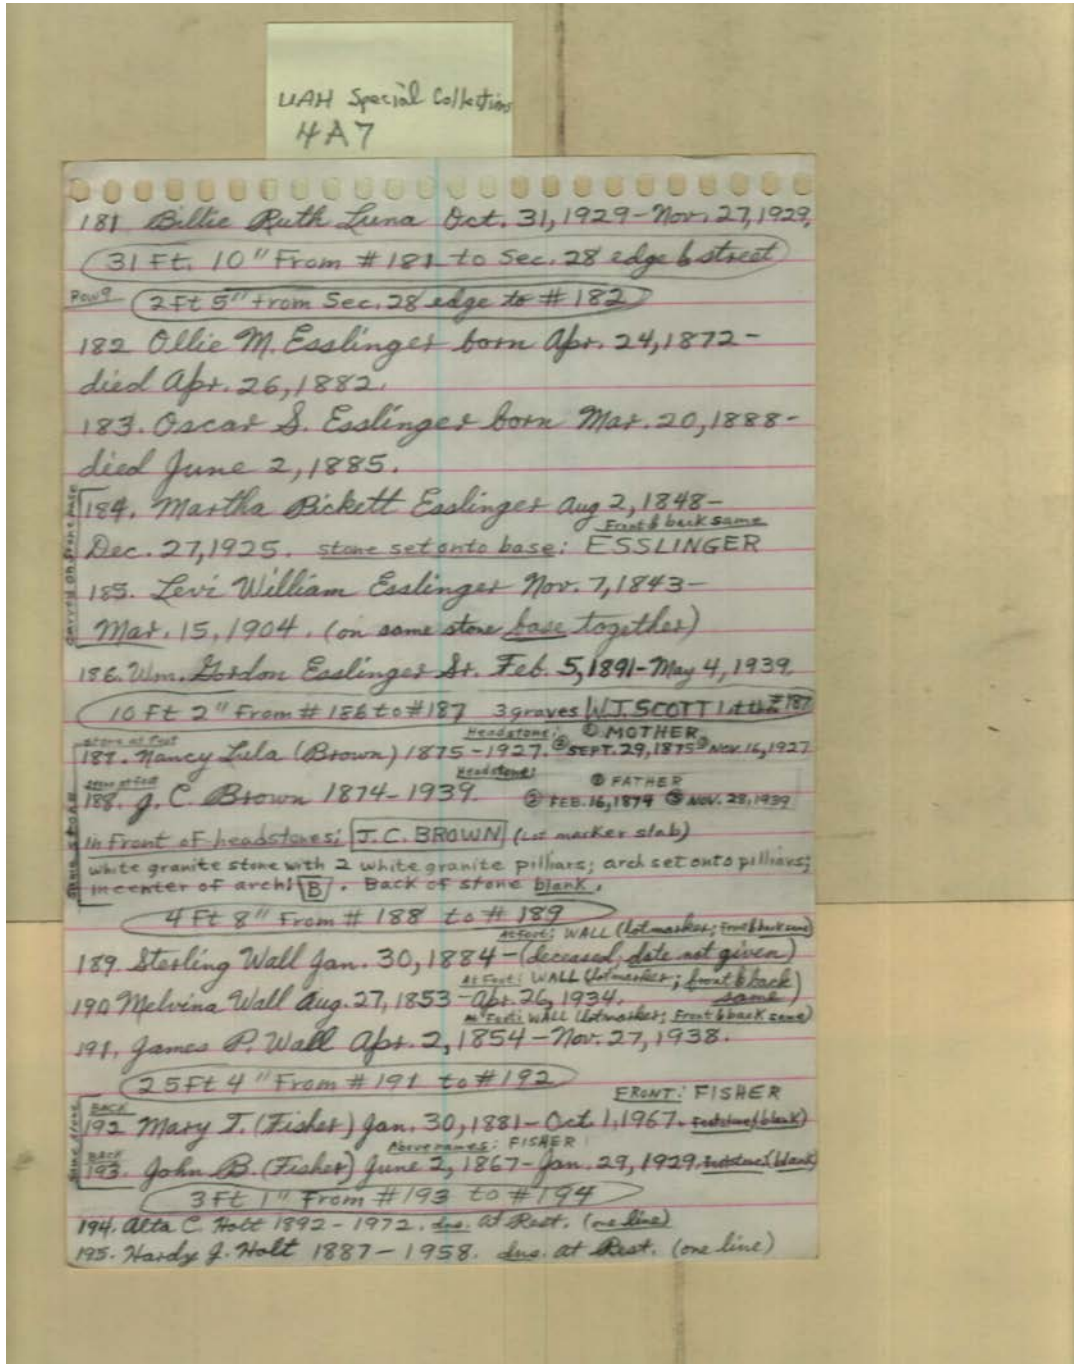 UAH Special Collections
4A7
181 Billie Ruth Luna Oct. 31, 1929-Nov. 27, 1929,
31 Ft. 10" From #181 to Sec. 28 edge & street
Row 9 2 Ft 5" from Sec. 28 edge to #182
182 Ollie M. Esslinger born Apr. 24, 1872-
died Apr. 26, 1882.
183. Oscar S. Esslinger born Mar. 20, 1888-
died June 2, 1885.
184. Martha Pickett Esslinger Aug 2, 1848-
Front & back same
Dec. 27, 1925. stone set onto base: ESSLINGER
185. Levi William Esslinger Nov. 7, 1843-
Mar. 15, 1904. (on same stone base together)
186. Wm. Gordon Esslinger Sr. Feb. 5, 1891-May 4, 1939.
10 Ft 2" From #186 to #187 3 graves W.T. SCOTT #187
Stone at foot Headstone: ① MOTHER
187. Nancy Lula (Brown) 1875-1927. ② SEPT. 29, 1875 ③ NOV. 16, 1927
Stone at foot Headstone: ① FATHER
188. J. C. Brown 1874-1939. ② FEB. 16, 1874 ③ NOV. 28, 1939
Same stone
In Front of headstones; J.C. BROWN (Lot marker slab)
White granite stone with 2 white granite pilliars; arch set onto pilliars;
in center of arch: B. Back of stone blank.
4 Ft 8" From #188 to #189
At foot: WALL (lot marker; Front & back same)
189. Sterling Wall Jan. 30, 1884-(deceased, date not given)
At Foot: WALL (lot marker; front & back same)
190 Melvina Wall Aug. 27, 1853-Apr. 26, 1934.
At Foot: WALL (lot marker; Front & back same)
191. James P. Wall Apr. 2, 1854-Nov. 27, 1938.
25 Ft 4" From #191 to #192
FRONT: FISHER
Same stone
BACK
192 Mary T. (Fisher) Jan. 30, 1881-Oct 1, 1967. Footstone (blank)
Above names: FISHER
BACK
193. John B. (Fisher) June 2, 1867-Jan. 29, 1929. Footstone (blank)
3 Ft 1" From #193 to #194
194. Alta C. Holt 1892-1972. dns. At Rest. (one line)
195. Hardy J. Holt 1887-1958. dns. at Rest. (one line)